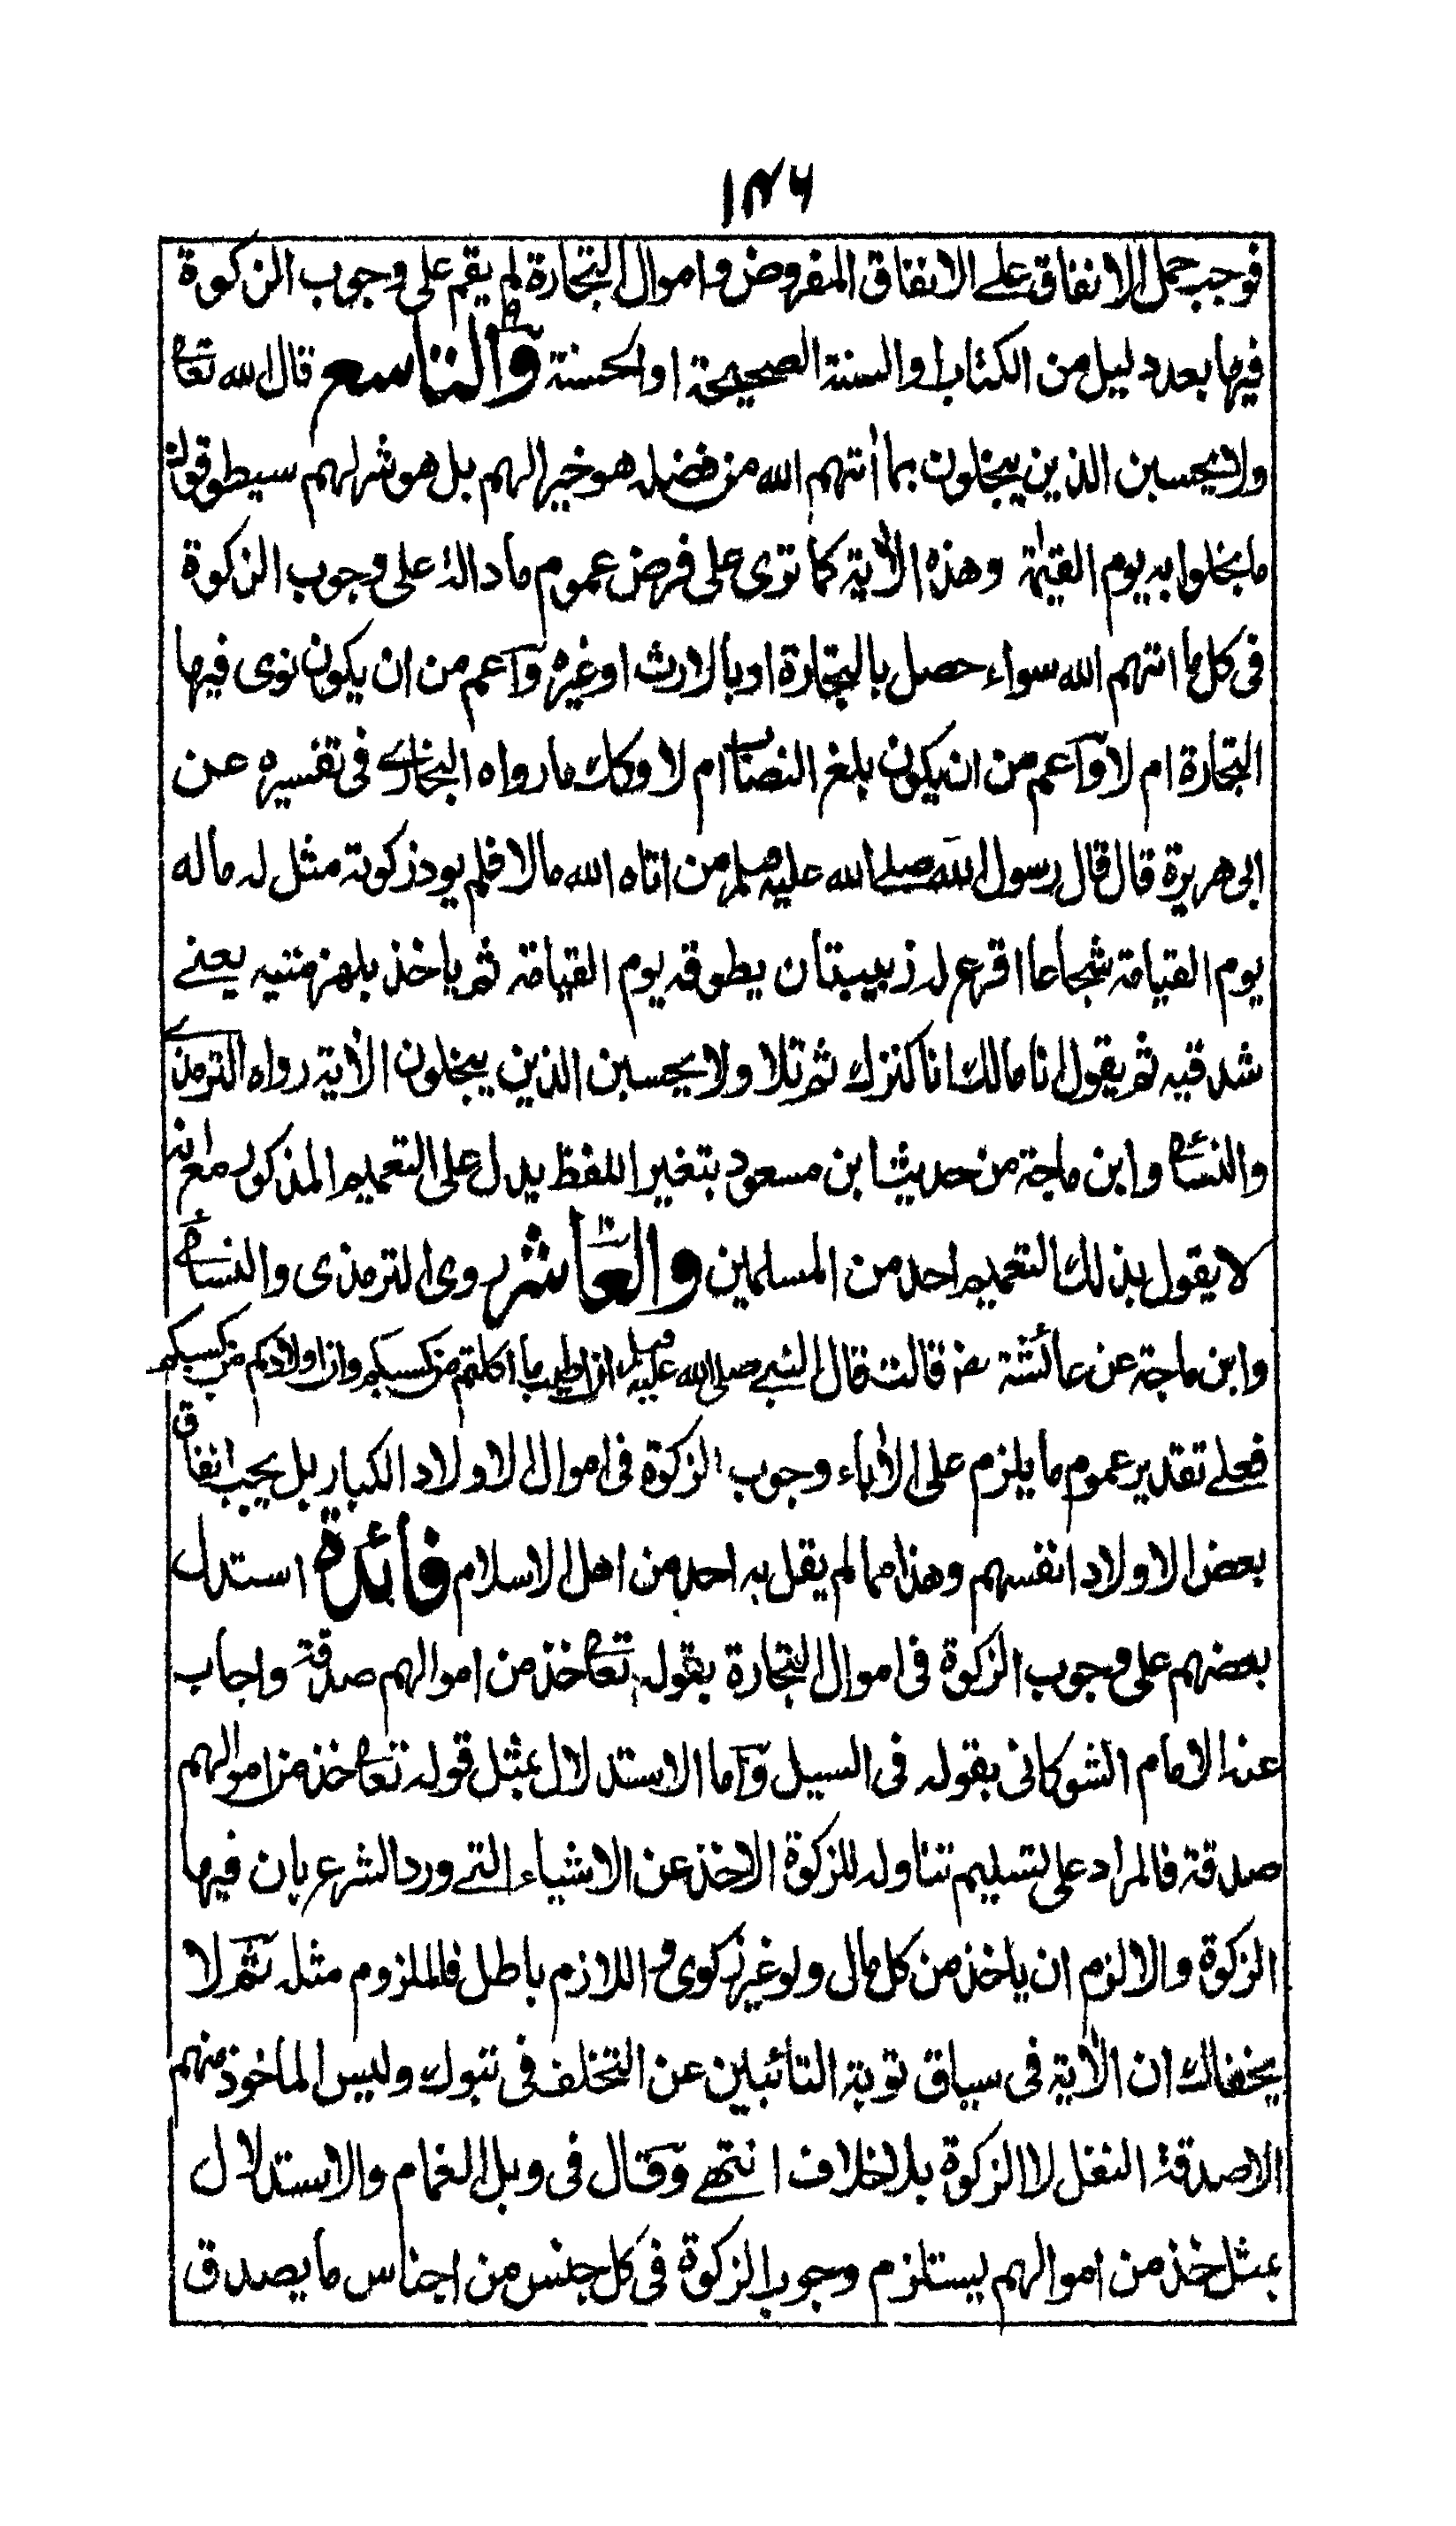 ١٣٦
فوجب حمل الانفاق علے الانفاق المفروض واموال التجارة لم يقم على وجوب الزكوة
فيها بعد دليل من الكتاب والسنة الصحيحة او الحسنة والتاسع قال الله تعالى
ولا يحسبن الذين يبخلون بما اٰتٰهم الله من فضله هو خيرا لهم بل هو شر لهم سيطوقون
ما بخلوا به يوم القيٰمة وهذه الاٰية كما ترى على فرض عموم ما دالة على وجوب الزكوة
فى كل ما اٰتهم الله سواء حصل بالتجارة او بالارث او غيره وآعم من ان يكون نوى فيها
التجارة ام لا وآعم من ان يكون بلغ النصاب ام لا وكك ما رواه البخارے فى تفسيره عن
ابى هريرة قال قال رسول الله صلے الله عليه وسلم من اتاه الله مالا فلم يود زكوته مثل له ماله
يوم القيامة شجاعا اقرع له زبيبتان يطوقه يوم القيامة ثم ياخذ بلهزمتيه يعنے
شدقيه ثم يقول انا مالك انا كنزك ثم تلا ولا يحسبن الذين يبخلون الاٰية رواه الترمذے
والنسائى وابن ماجة من حديث ابن مسعود بتغير اللفظ يدل على التعميم المذكور مع انه
لا يقول بذلك التعميم احد من المسلمين والعاشر روى الترمذى والنسائى
وابن ماجة عن عائشة رض قالت قال النبے صلى الله عليه وسلم ان اطيب ما اكلتم من كسبكم وان اولادكم من كسبكم
فعلے تقدير عموم ما يلزم على الاٰباء وجوب الزكوة فى اموال الاولاد الكبار بل يجب انفاق
بعض الاولاد انفسهم وهذا مما لم يقل به احد من اهل الاسلام فائدة استدل
بعضهم على وجوب الزكوة فى اموال التجارة بقوله تعالى خذ من اموالهم صدقة واجاب
عنه الامام الشوكانى بقوله فى السيل وآما الاستدلال بمثل قوله تعالى خذ من اموالهم
صدقة فالمراد على تسليم تناوله للزكوة الاخذ عن الاشياء التے ورد الشرع بان فيها
الزكوة والا لزم ان ياخذ من كل مال ولو غير زكوى واللازم باطل فالملزوم مثله ثم لا
يخفاك ان الاٰية فى سياق توبة التائبين عن التخلف فى تبوك وليس الماخوذ منهم
الا صدقة النفل لا الزكوة بلا خلاف انتهے وقال فى وبل الغمام والاستدلال
بمثل خذ من اموالهم يستلزم وجوب الزكوة فى كل جنس من اجناس ما يصدق